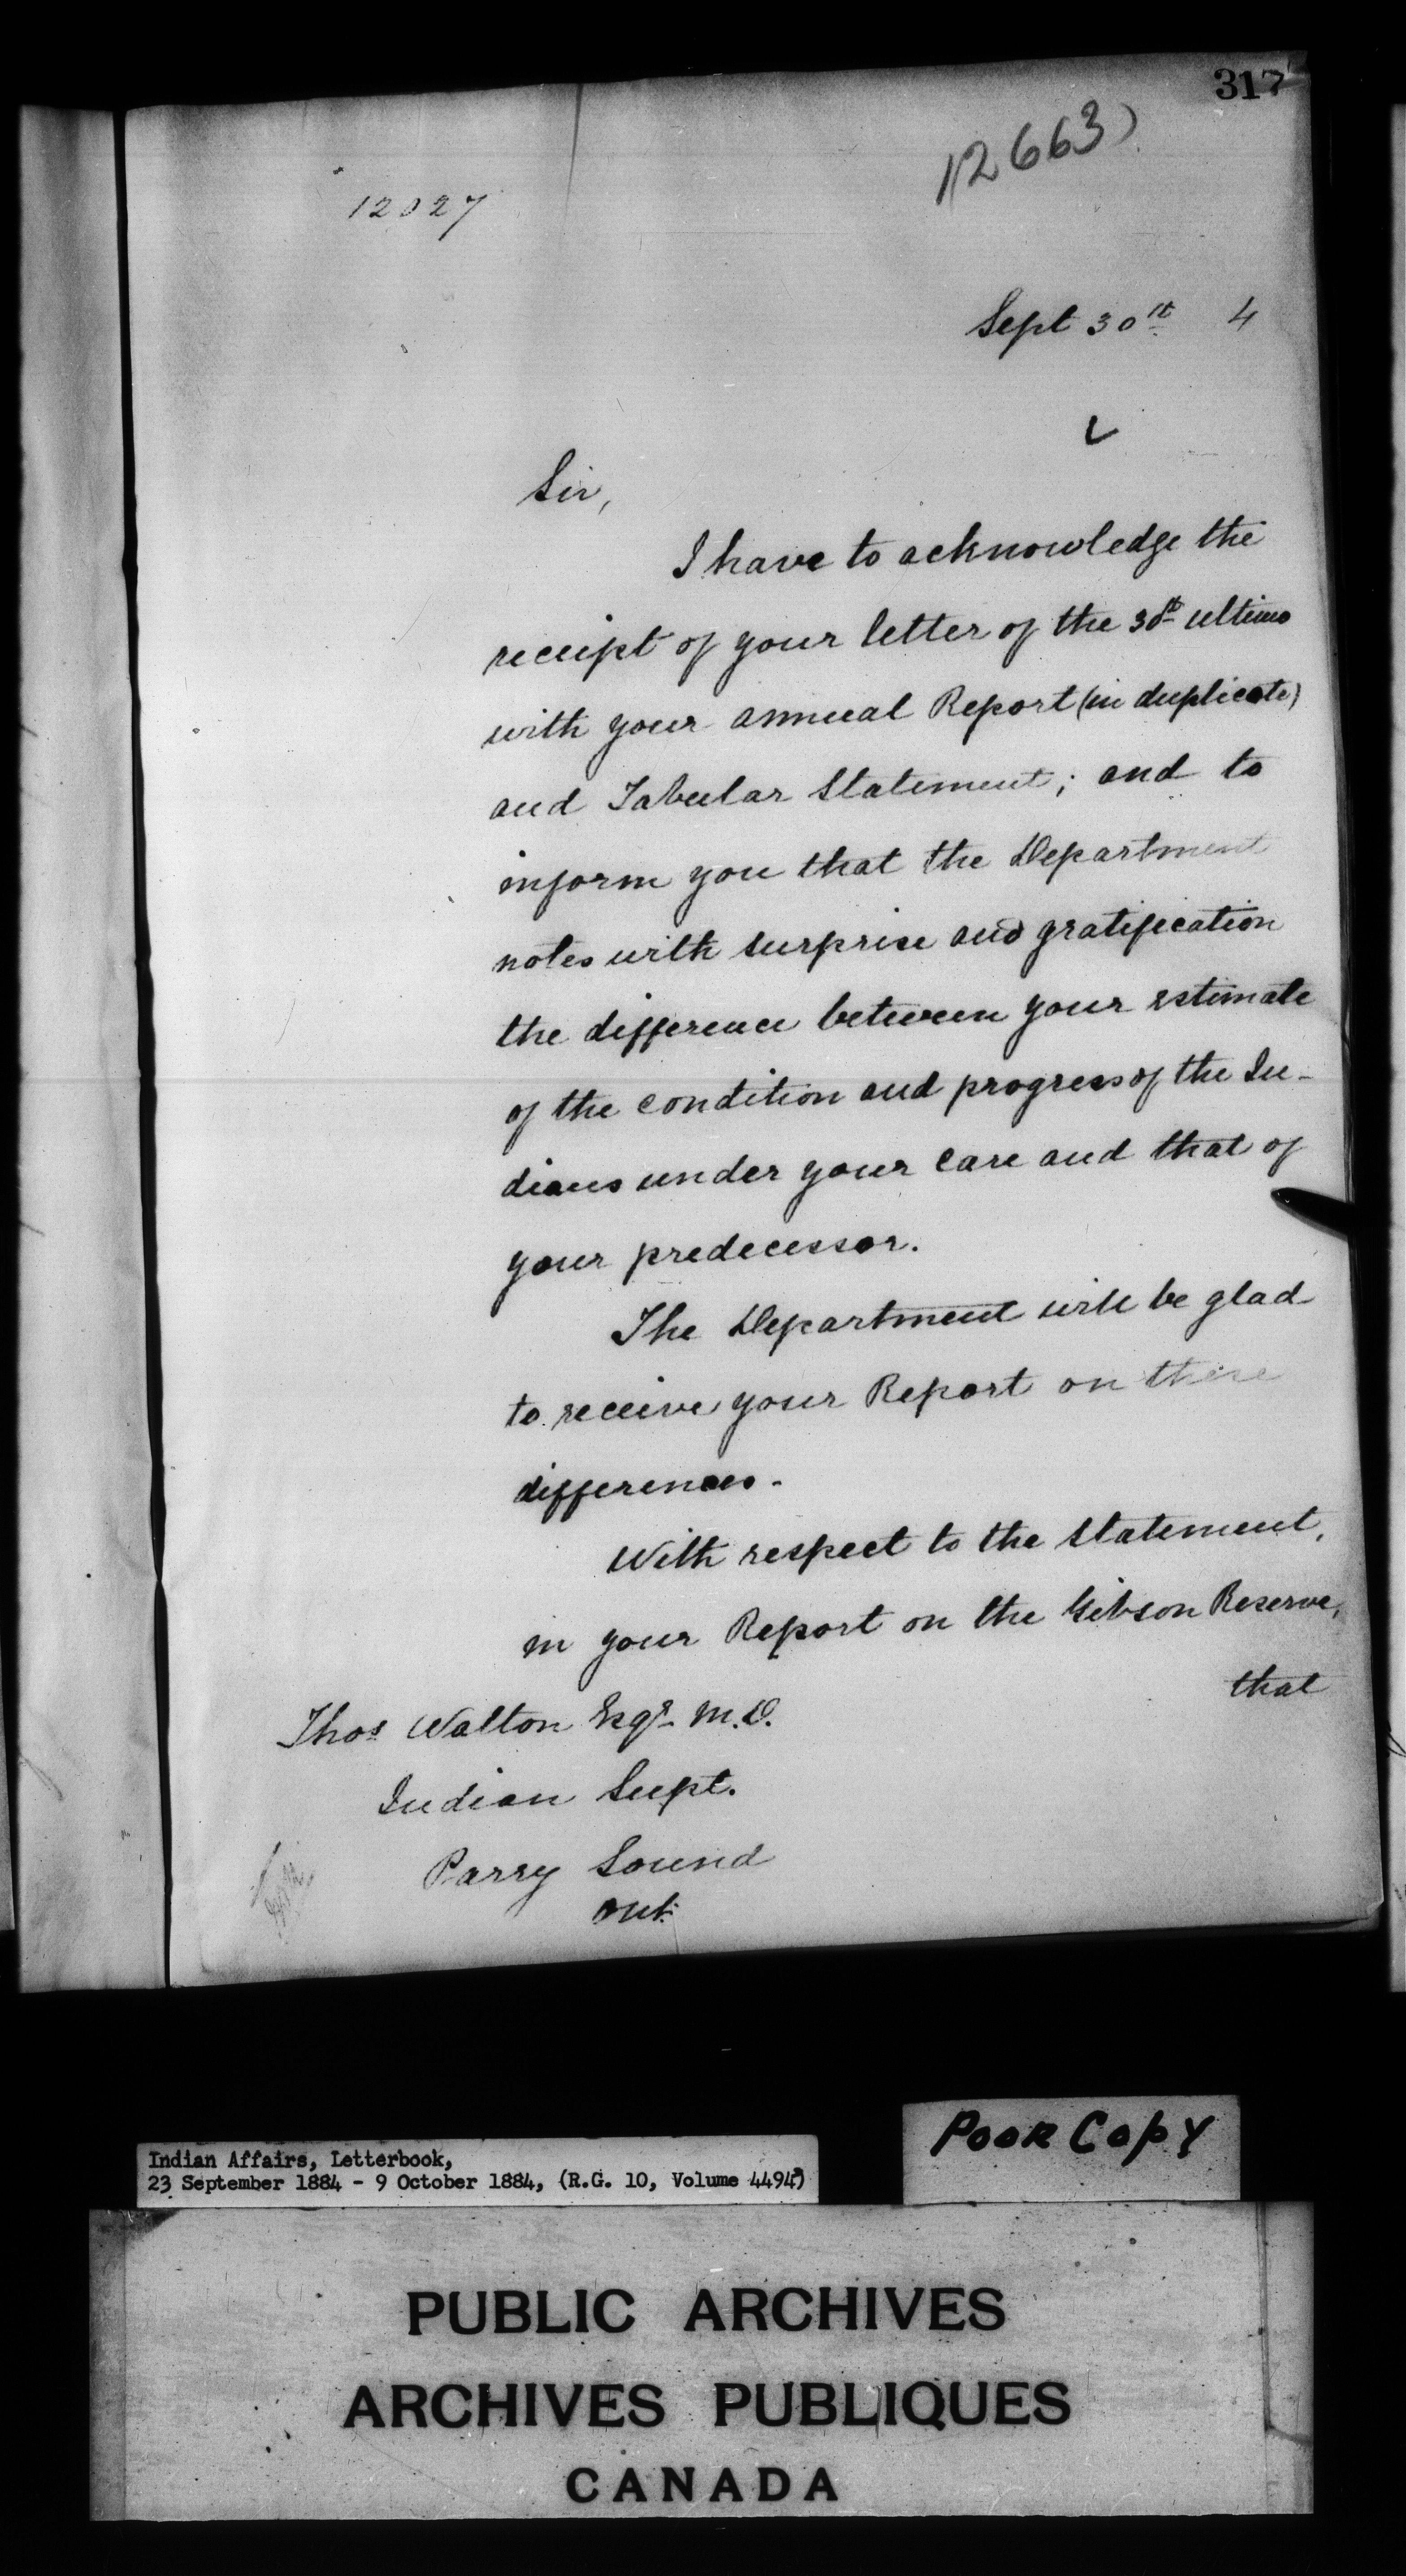 317
12663
12027
Sept 30th 4
Sir,
I have to acknowledge the
receipt of your letter of the 30th ultimo
with your annual Report (in duplicate)
and Tabular Statement; and to
inform you that the Department
notes with surprise and gratification
the difference between your estimate
of the condition and progress of the In-
dians under your care and that of
your predecessor.
The Department will be glad
to receive your Report on these
differences.
With respect to the statement,
in your Report on the Gibson Reserve,
that
Thos Walton Esqr M.D.
Indian Supt.
Parry Sound
Ont.
Poor Copy
Indian Affairs, Letterbook,
23 September 1884 - 9 October 1884, (R.G. 10, Volume 4494)
PUBLIC ARCHIVES
ARCHIVES PUBLIQUES
CANADA